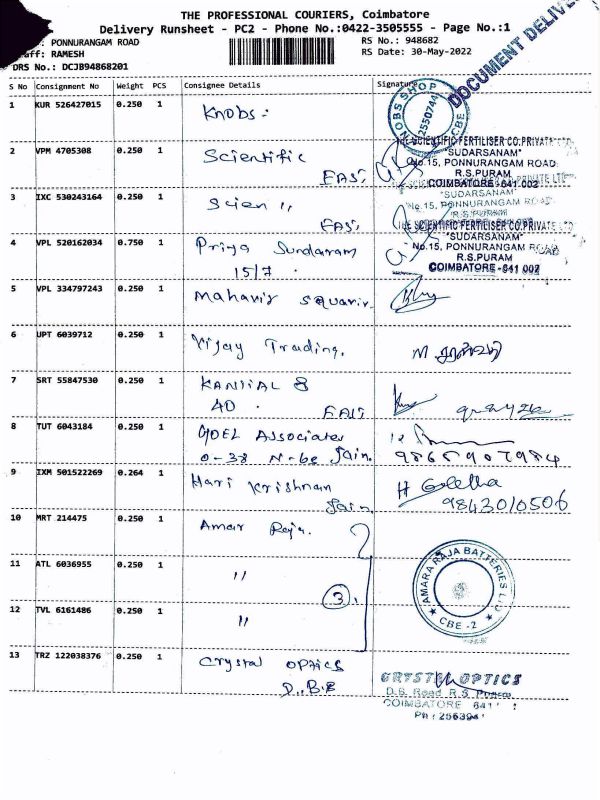 THE PROFESSIONAL COURIERS, Coimbatore
Delivery Runsheet - PC2 - Phone No.:0422-3505555 - Page No.:1
: PONNURANGAM ROAD RS No.: 948682
: RAMESH RS Date: 30-May-2022
DRS No.: DCJB94868201
DOCUMENT
S No Consignment No Weight PCS Consignee Details Signature
1 KUR 526427015 0.250 1 Knobs -
KNOBS SHOP
2550744
CBE
2 VPM 4705308 0.250 1 Scientific
SCIENTIFIC FERTILISER CO.PRIVATE LTD
"SUDARSANAM"
No.15, PONNURANGAM ROAD
R.S.PURAM
COIMBATORE-641 002
3 IXC 530243164 0.250 1 Scien "
"SUDARSANAM"
No.15, PONNURANGAM ROAD
R.S.PURAM
4 VPL 520162034 0.750 1 Priya Sundaram
15/7
SCIENTIFIC FERTILISER CO.PRIVATE LTD
"SUDARSANAM"
No.15, PONNURANGAM ROAD
R.S.PURAM
COIMBATORE-641 002
5 VPL 334797243 0.250 1 Mahavir
6 UPT 6039712 0.250 1 Vijay Trading.
7 SRT 55847530 0.250 1
8 TUT 6043184 0.250 1 GOEL Associates
Jain.
9 IXM 501522269 0.264 1 Hari Krishnan
Jain.
9843010506
10 MRT 214475 0.250 1 Amar Raja.
11 ATL 6036955 0.250 1 "
3.
12 TVL 6161486 0.250 1 "
AMARA RAJA BATTERIES LTD
CBE -2
13 TRZ 122038376 0.250 1 Crystal Optics
D.B.R
CRYSTAL OPTICS
D.B. Road R.S. Puram
COIMBATORE 641